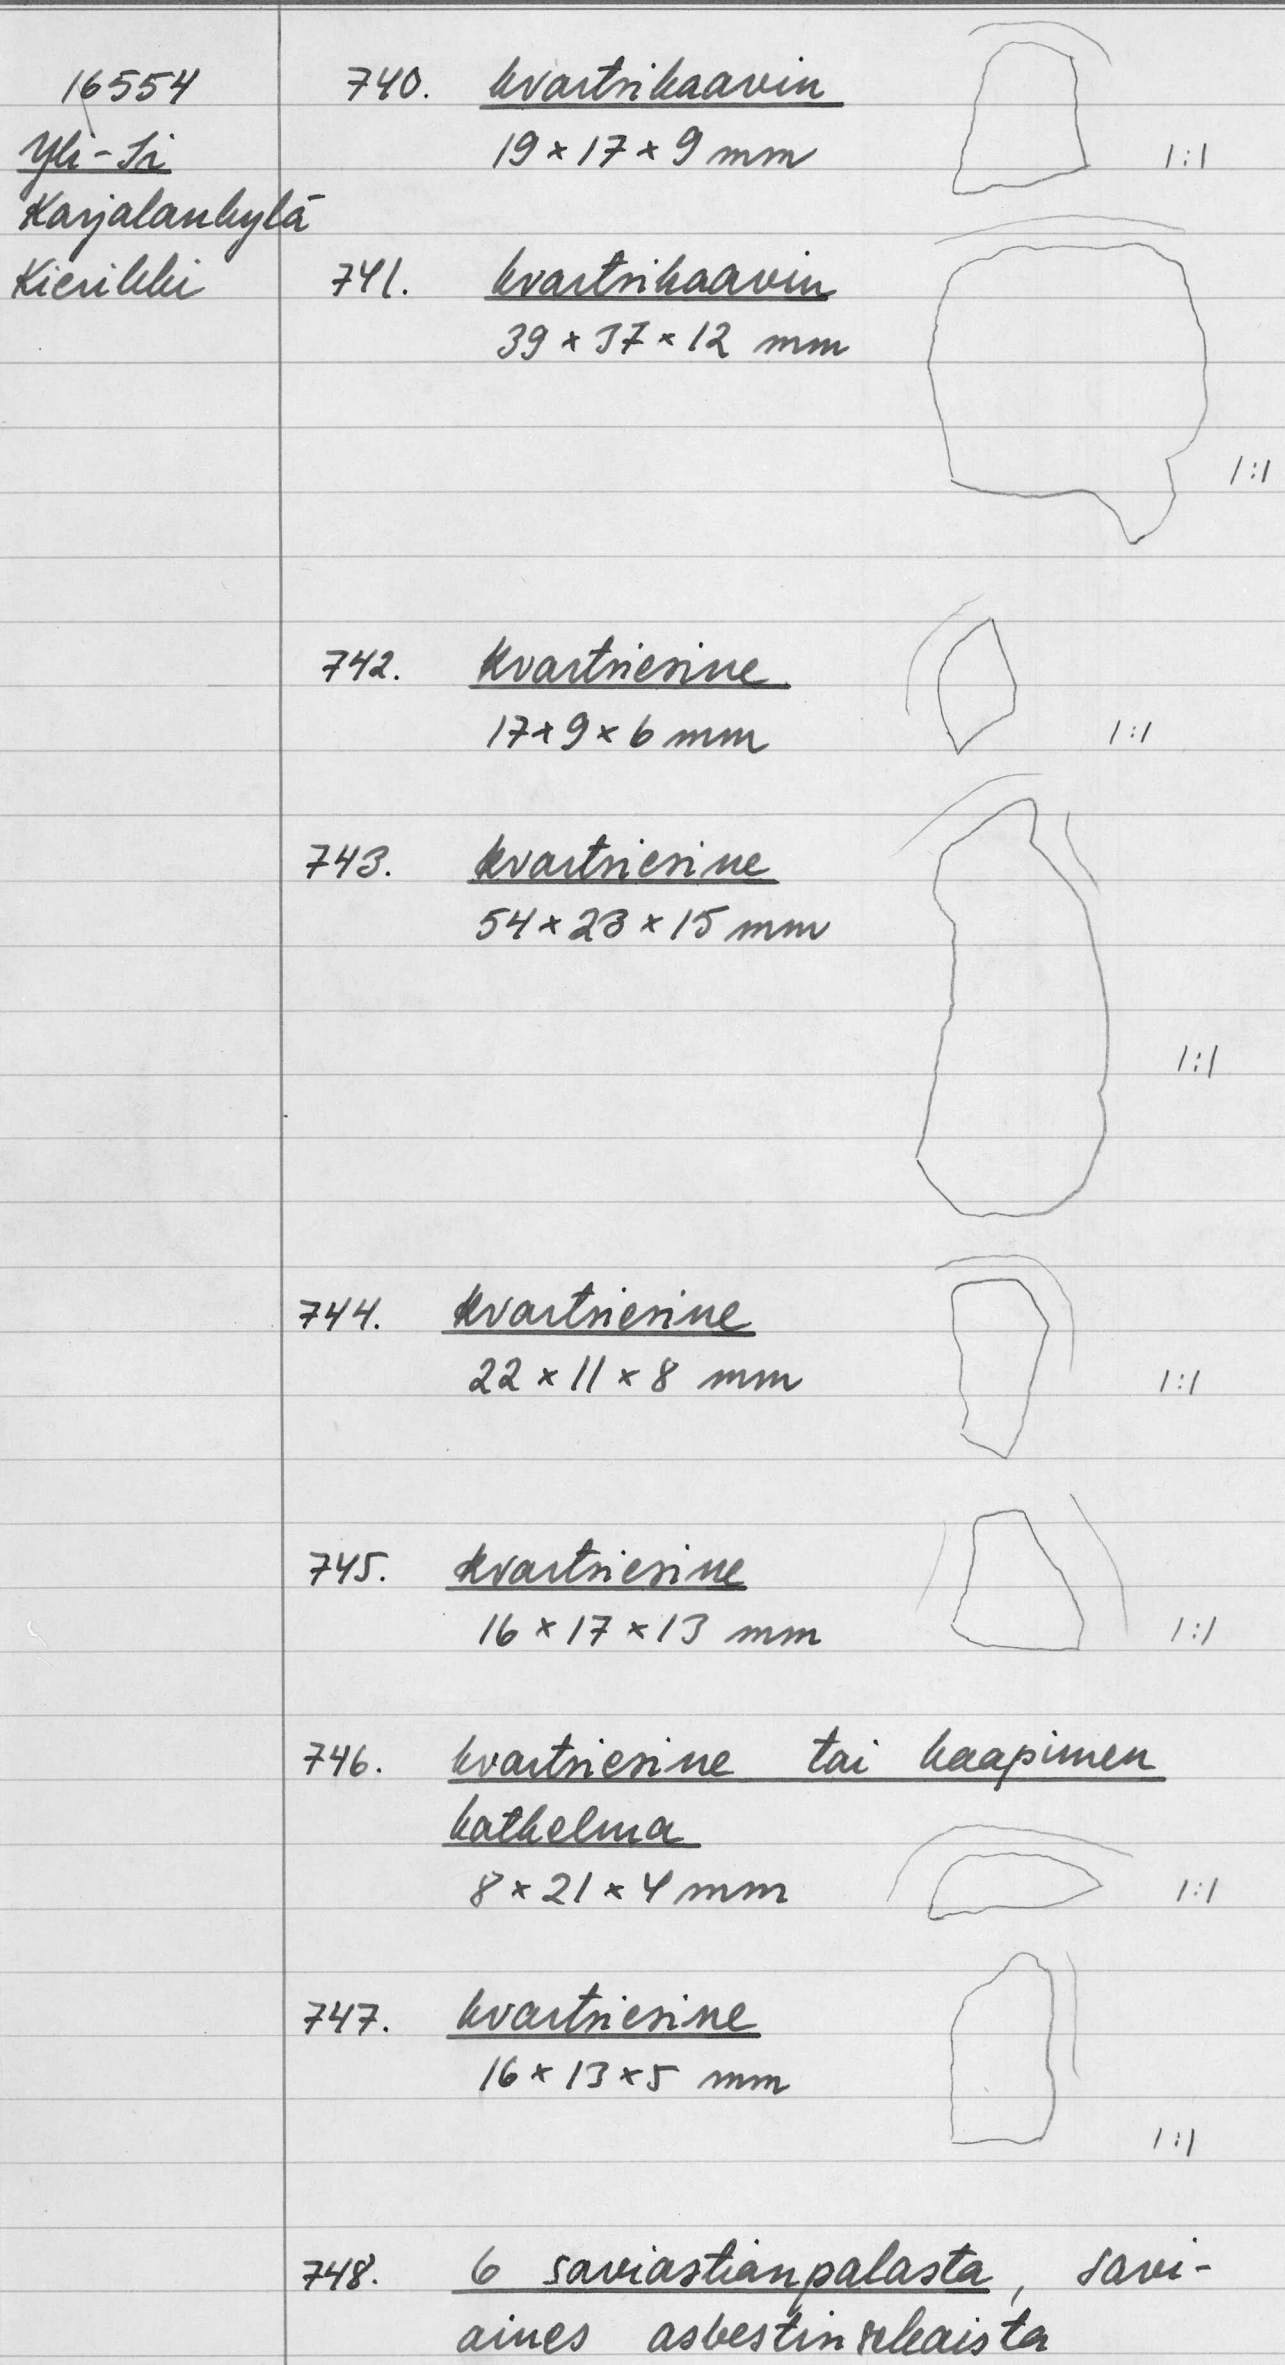 16554
Yli-Ii
Karjalankylä
Kierikki
740. kvartsikaavin
19 x 17 x 9 mm
1:1
741. kvartsikaavin
39 x 37 x 12 mm
1:1
742. kvartsiesine
17 x 9 x 6 mm
1:1
743. kvartsiesine
54 x 23 x 15 mm
1:1
744. kvartsiesine
22 x 11 x 8 mm
1:1
745. kvartsiesine
16 x 17 x 13 mm
1:1
746. kvartsiesine tai kaapimen
katkelma
8 x 21 x 4 mm
1:1
747. kvartsiesine
16 x 13 x 5 mm
1:1
748. 6 saviastianpalasta, savi-
aines asbestinsekaista